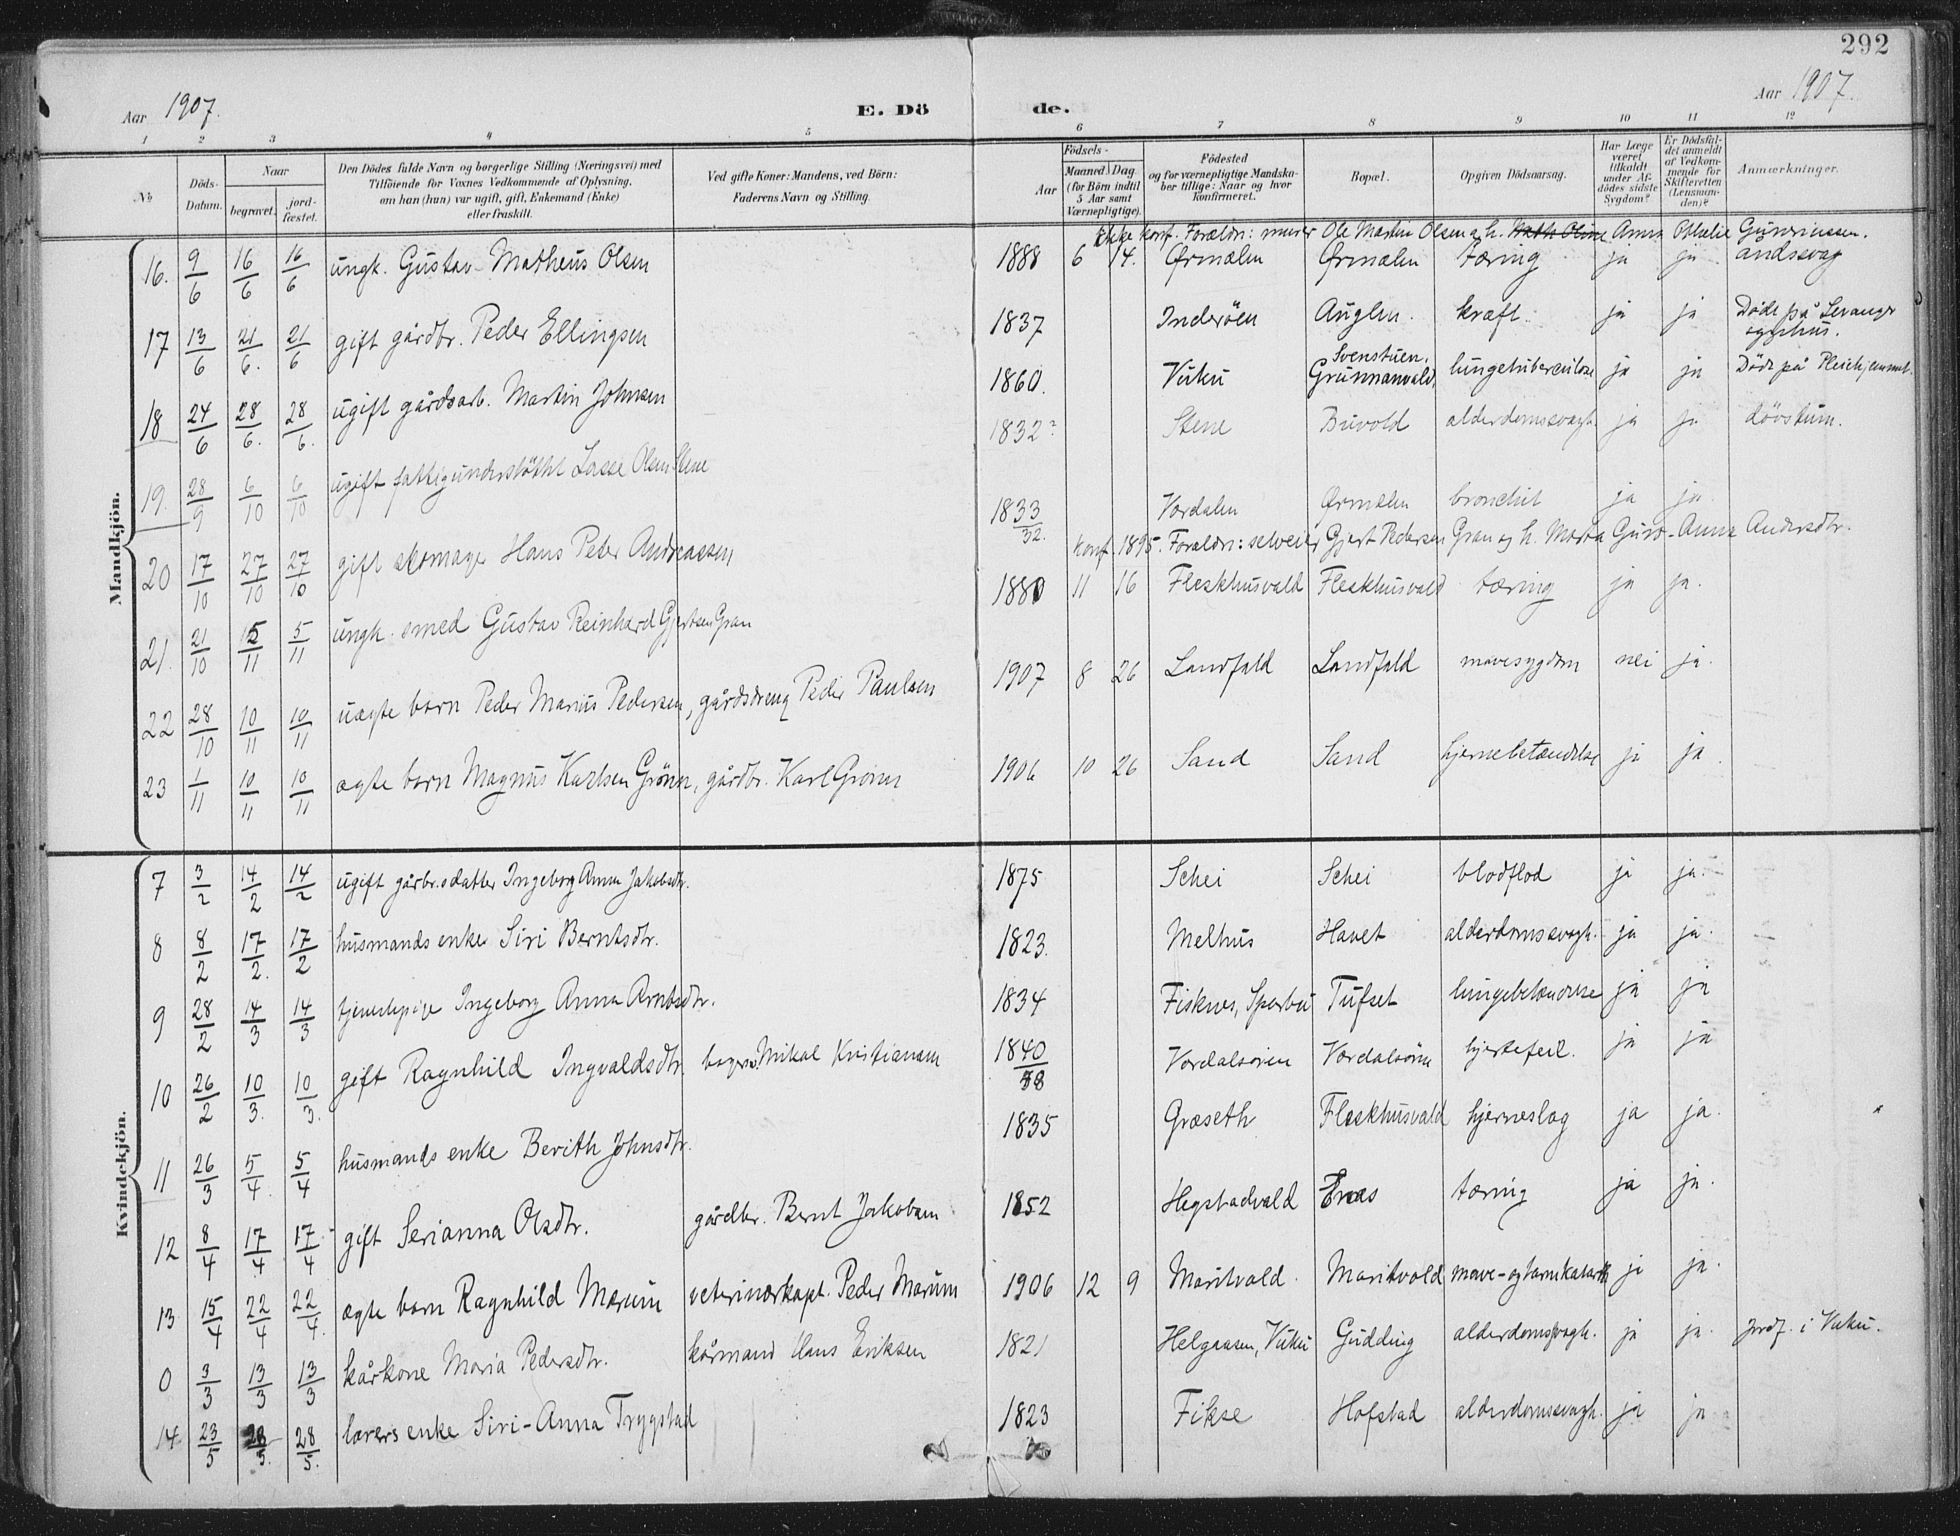 292
Aar 1907. E. Dö de. Aar 1907.
1 2 3 4 5 6 7 8 9 10 11 12
No. Döds-Datum. Naar begravet. jordfæstet. Den Dödes fulde Navn og borgerlige Stilling (Næringsvei) med Tilföiende for Voxnes Vedkommende af Oplysning, om han (hun) var ugift, gift, Enkemand (Enke) eller fraskilt. Ved gifte Koner: Mandens, ved Börn: Faderens Navn og Stilling. Födsels- Aar Maaned Dag (for Börn indtil 5 Aar samt Værnepligtige). Födested og for værnepligtige Mandskaber tillige: Naar og hvor konfirmeret. Bopæl. Opgiven Dödsaarsag. Har Læge været tilkaldt under Afdödes sidste Sygdom? Er Dödsfaldet anmeldt af Vedkommende for Skifteretten (Lensmanden)? Anmærkninger.
Mandkjön.
ikke konf. Forældre: murer Ole Martin Olsen og h. Anna Othelie
16. 9/6 16/6 16/6 ungk. Gustav Matheus Olsen 1888 6 14. Ørmælen Ørmælen tæring ja ja andssvag
17 13/6 21/6. 21/6 gift gårdbr. Peder Ellingsen 1837 Inderöen Auglen. kræft. ja ja Döde på Levanger sygehus.
18 24/6 28/6. 28/6. ugift gårdsarb. Martin Johnsen 1860. Vuku Svenstuen, Grunnanvald lungetuberculose ja ja Döde på Pleiehjemmet.
19. 28/9 6/10 6/10 ugift fattigunderstöttet Lasse Olsen Stene 1832? Stene Buvold alderdomssvagh. ja ja dövstum.
20 17/10 27/10 27/10 gift skomager Hans Peter Andreassen 1833/32. Værdalen Ørmælen bronchit ja ja
konf. 1895. Forældre: selveier Gjert Pedersen Gran og h. Marta Guro-Anna Andersdtr.
21. 21/10 5/11 5/11 ungk. smed Gustav Reinhard Gjertsen Gran 1880 11 16 Fleskhusvald Fleskhusvald tæring ja ja.
22 28/10 10/11 10/11 uægte barn Peder Marius Pedersen, gårdsdreng Peder Paulsen 1907 8 26 Landfald Landfald mavesygdom nei ja.
23 1/11 10/11 10/11 ægte barn Magnus Karlsen Grönn, gårdbr. Karl Grönn 1906 10 26 Sand Sand hjernebetændelse ja ja.
Kvindekjön.
7 3/2 14/2 14/2 ugift gårbr.sdatter Ingeborg Anna Jakobsdtr. 1875 Schei Schei blodflod ja ja.
8 8/2 17/2. 17/2 husmands enke Siri Berntsdtr. 1823. Melhus Havet alderdomssvagh. ja ja.
9 28/2 14/3 14/3 tjenestepige Ingeborg Anna Arntsdtr. 1834 Fisknes, Sparbu Tufset lungebetændelse ja ja
10 26/2 10/3. 10/3. gift Ragnhild Ingvaldsdtr. Mikal Kristiansen 1840/38 Værdalsören Værdalsören hjertefeil. ja ja
11 26/3 5/4. 5/4 husmands enke Berith Johnsdtr. 1835 Græseth Fleskhusvald hjerneslag ja ja.
12 8/4 17/4 17/4 gift Serianna Olsdtr. gårdbr. Bernt Jakobsen 1852 Hegstadvald Enes tæring ja ja.
13 15/4 22/4 22/4. ægte barn Ragnhild Marum veterinærkapt. Peder Marum 1906 12 9 Maritvold. Maritvold mave- og tarmkatarrh ja ja.
0 3/3 13/3 13/3 kårkone Maria Pedersdtr. kårmand Hans Eriksen 1821 Helgaasen, Vuku Gudding alderdomssvagh. ja ja. jordf. i Vuku.
14 23/5 28/5. 28/5. lærers enke Siri-Anna Trygstad 1823 Fikse Hofstad alderdomssvagh. ja ja